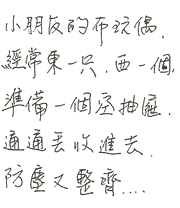 小朋友的布玩偶,
經常東一只,西一個,
準備一個空抽屜,
通通丟收進去,
防塵又整齊....